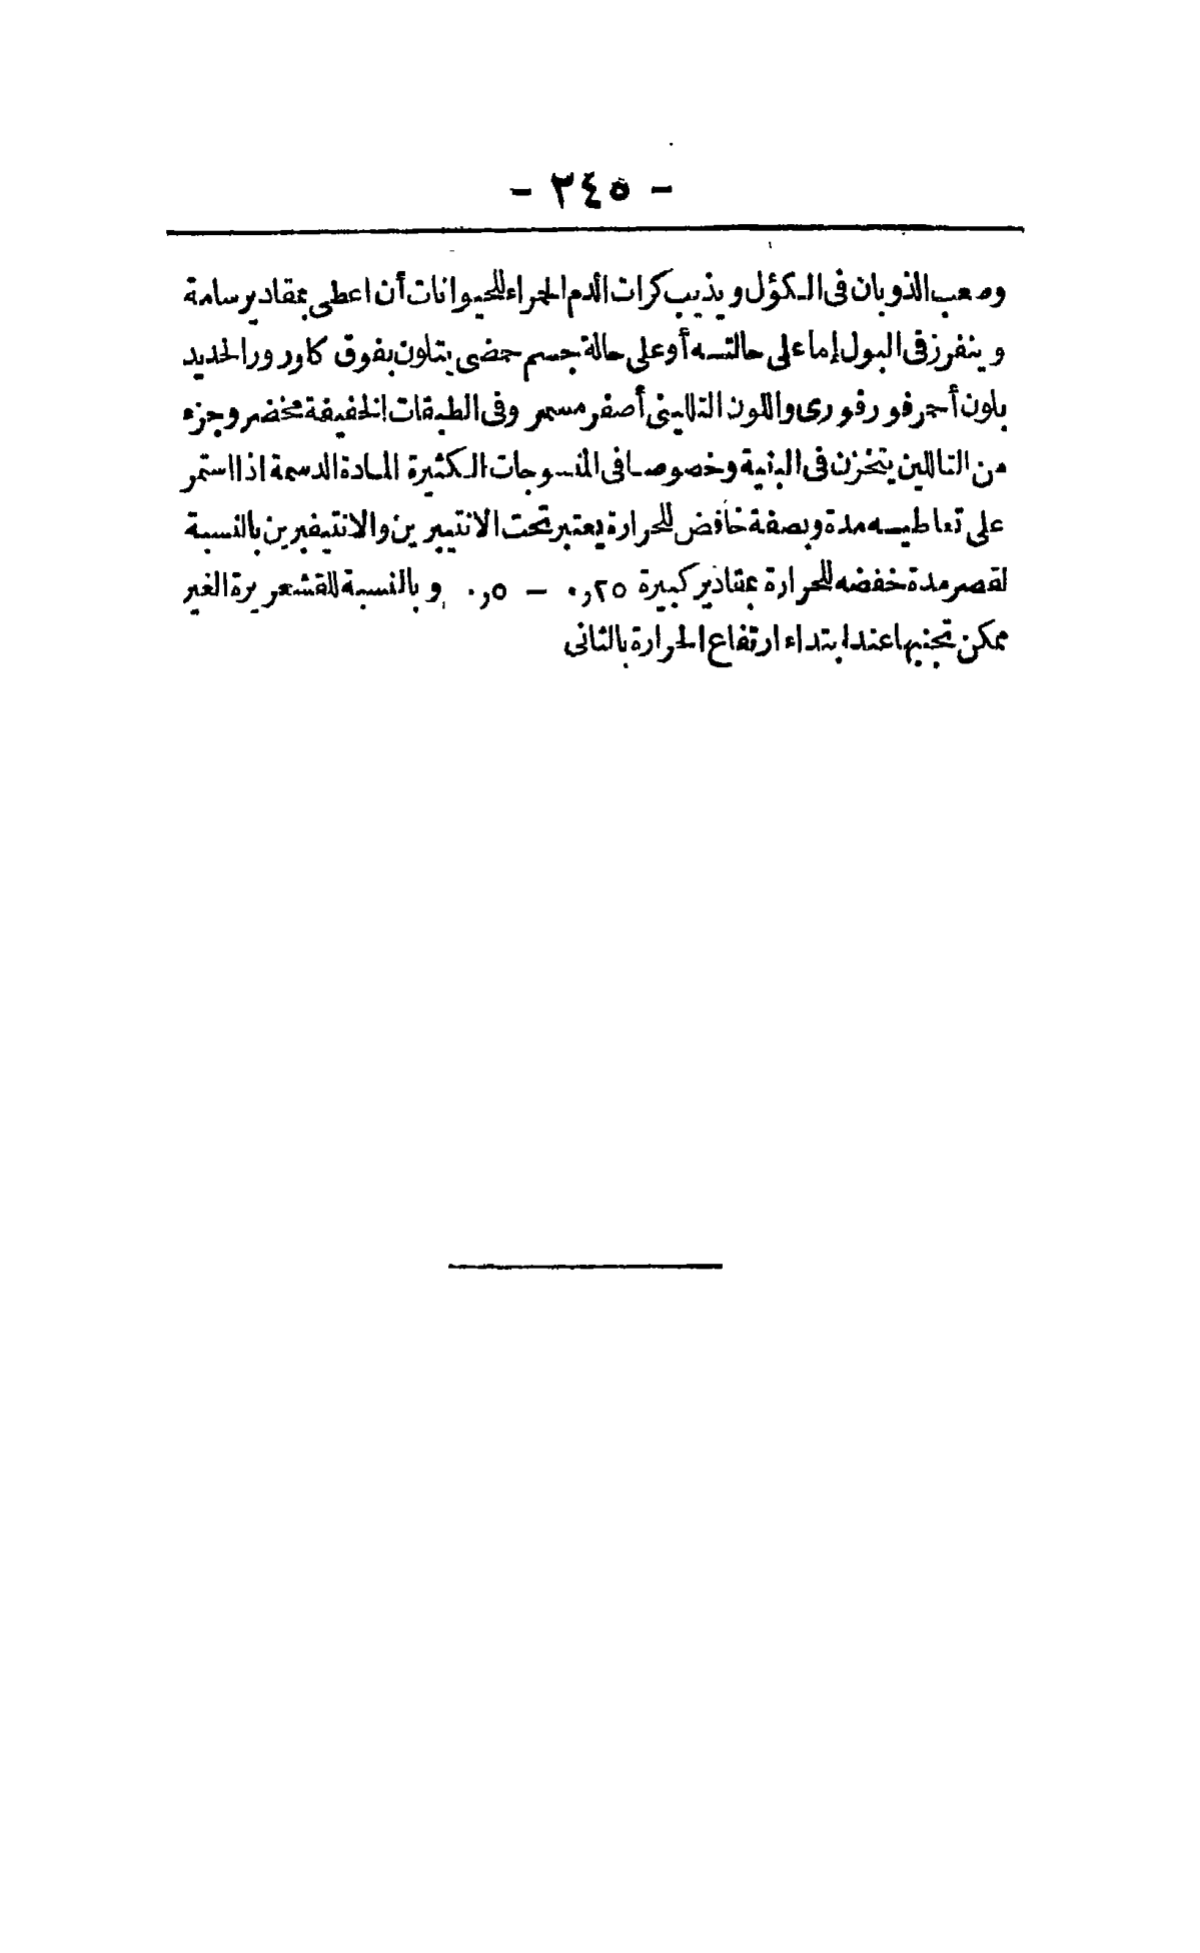 - ٣٤٥ -
وصعب الذوبان فى الكؤل ويذيب كرات الدم الحمراء للحيوانات أن اعطى بمقادير سامة
وينفرز فى البول إما على حالته أو على حالة جسم حمضى يتلون بفوق كلورور الحديد
بلون أحمر فورفورى واللون التاللينى أصفر مسمر وفى الطبقات الخفيفة مخضر وجزء
من التاللين يتخزن فى البنية وخصوصا فى المنسوجات الكثيرة المادة الدسمة اذا استمر
على تعاطيه مدة وبصفة خافض للحرارة يعتبر تحت الانتيبرين والانتيفبرين بالنسبة
لقصر مدة خفضه للحرارة بمقادير كبيرة ٠,٢٥ – ٠,٥ وبالنسبة للقشعريرة الغير
ممكن تجنبها عند ابتداء ارتفاع الحرارة بالثانى